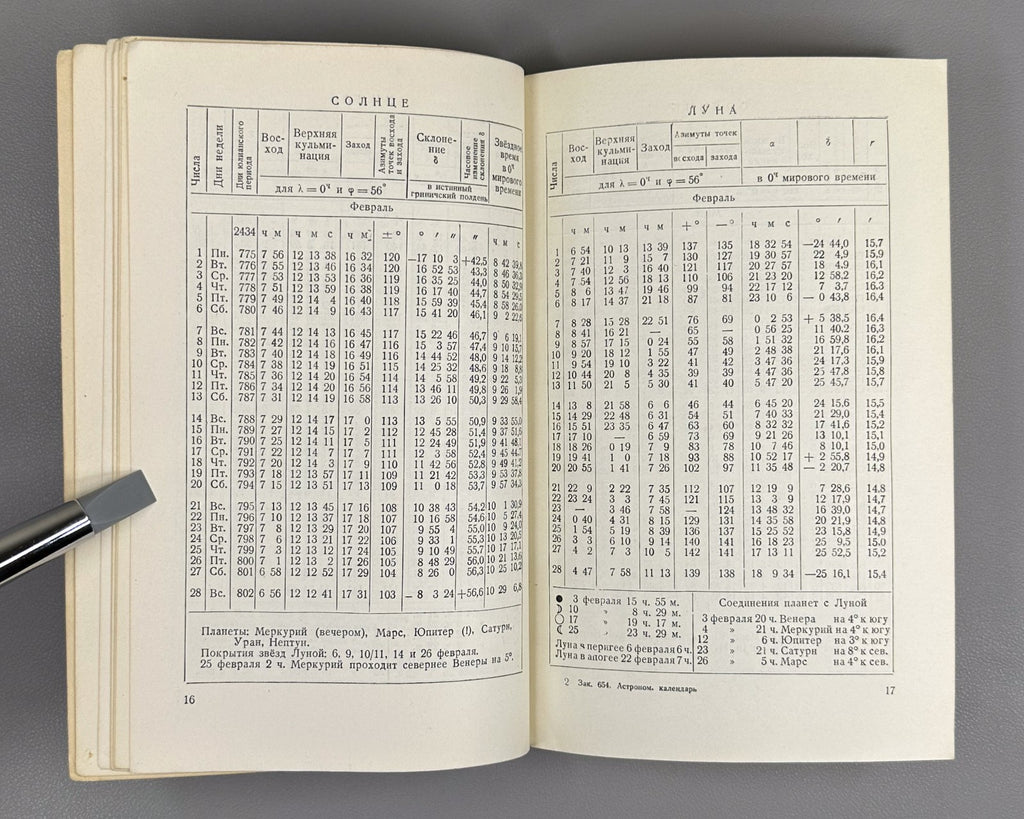 СОЛНЦЕ
Числа
Дни недели
Дни юлианского периода
Вос-
ход
Верхняя
кульми-
нация
Заход
Азимуты точек восхода и захода
Склоне-
ние
δ
Часовое изменение склонения δ
Звёздное
время
в 0ч
мирового
времени
для λ = 0ч и φ = 56°
в истинный
гриничский полдень
Февраль
2434 ч м ч м с ч м ±° ° ′ ″ ″ ч м с
1 Пн. 775 7 56 12 13 38 16 32 120 —17 10 3 +42,5 8 42 39,8
2 Вт. 776 7 55 12 13 46 16 34 120 16 52 53 43,3 8 46 36,3
3 Ср. 777 7 53 12 13 53 16 36 119 16 35 25 44,0 8 50 32,9
4 Чт. 778 7 51 12 13 59 16 38 119 16 17 40 44,7 8 54 29,5
5 Пт. 779 7 49 12 14 4 16 40 118 15 59 39 45,4 8 58 26,0
6 Сб. 780 7 46 12 14 9 16 43 117 15 41 20 46,1 9 2 22,6
7 Вс. 781 7 44 12 14 13 16 45 117 15 22 46 46,7 9 6 19,1
8 Пн. 782 7 42 12 14 16 16 47 116 15 3 57 47,4 9 10 15,7
9 Вт. 783 7 40 12 14 18 16 49 116 14 44 52 48,0 9 14 12,2
10 Ср. 784 7 38 12 14 19 16 51 115 14 25 32 48,6 9 18 8,8
11 Чт. 785 7 36 12 14 20 16 54 114 14 5 58 49,2 9 22 5,3
12 Пт. 786 7 34 12 14 20 16 56 114 13 46 11 49,8 9 26 1,9
13 Сб. 787 7 31 12 14 19 16 58 113 13 26 10 50,3 9 29 58,4
14 Вс. 788 7 29 12 14 17 17 0 113 13 5 55 50,9 9 33 55,0
15 Пн. 789 7 27 12 14 15 17 2 112 12 45 28 51,4 9 37 51,6
16 Вт. 790 7 25 12 14 11 17 5 111 12 24 49 51,9 9 41 48,1
17 Ср. 791 7 22 12 14 7 17 7 111 12 3 58 52,4 9 45 44,7
18 Чт. 792 7 20 12 14 3 17 9 110 11 42 56 52,8 9 49 41,2
19 Пт. 793 7 18 12 13 57 17 11 109 11 21 42 53,3 9 53 37,8
20 Сб. 794 7 15 12 13 51 17 13 109 11 0 18 53,7 9 57 34,3
21 Вс. 795 7 13 12 13 45 17 16 108 10 38 43 54,2 10 1 30,9
22 Пн. 796 7 10 12 13 37 17 18 107 10 16 58 54,6 10 5 27,4
23 Вт. 797 7 8 12 13 29 17 20 107 9 55 4 55,0 10 9 24,0
24 Ср. 798 7 6 12 13 21 17 22 106 9 33 1 55,3 10 13 20,5
25 Чт. 799 7 3 12 13 12 17 24 105 9 10 49 55,7 10 17 17,1
26 Пт. 800 7 1 12 13 2 17 26 105 8 48 29 56,0 10 21 13,6
27 Сб. 801 6 58 12 12 52 17 29 104 8 26 0 56,3 10 25 10,2
28 Вс. 802 6 56 12 12 41 17 31 103 — 8 3 24 +56,6 10 29 6,8
Планеты: Меркурий (вечером), Марс, Юпитер (!), Сатурн,
Уран, Нептун.
Покрытия звёзд Луной: 6, 9, 10/11, 14 и 26 февраля.
25 февраля 2 ч. Меркурий проходит севернее Венеры на 5°.
16
ЛУНА
Числа
Вос-
ход
Верхняя
кульми-
нация
Заход
Азимуты точек
восхода захода
α
δ
r
для λ = 0ч и φ = 56°
в 0ч мирового времени
Февраль
ч м ч м ч м +° —° ч м с ° ′ ′
1 6 54 10 13 13 39 137 135 18 32 54 —24 44,0 15,7
2 7 21 11 9 15 7 130 127 19 30 57 22 4,9 16,1
3 7 40 12 3 16 40 121 117 20 27 57 18 4,9 16,1
4 7 54 12 56 18 13 110 106 21 23 20 12 58,2 16,2
5 8 6 13 47 19 46 99 94 22 17 12 7 3,7 16,3
6 8 17 14 37 21 18 87 81 23 10 6 — 0 43,8 16,4
7 8 28 15 28 22 51 76 69 0 2 53 + 5 38,5 16,4
8 8 41 16 21 — 65 — 0 56 25 11 40,2 16,3
9 8 57 17 15 0 24 55 58 1 51 32 16 59,8 16,2
10 9 20 18 12 1 55 47 49 2 48 38 21 17,6 16,1
11 9 54 19 10 3 22 41 42 3 47 36 24 17,3 15,9
12 10 44 20 8 4 35 39 39 4 47 36 25 47,8 15,8
13 11 50 21 5 5 30 41 40 5 47 20 25 45,7 15,7
14 13 8 21 58 6 6 46 44 6 45 20 24 15,6 15,5
15 14 29 22 48 6 31 54 51 7 40 33 21 29,0 15,4
16 15 51 23 35 6 47 63 60 8 32 32 17 41,6 15,2
17 17 10 — 6 59 73 69 9 21 26 13 10,1 15,1
18 18 26 0 19 7 9 83 78 10 7 46 8 10,1 15,0
19 19 41 1 0 7 18 93 88 10 52 17 + 2 55,8 14,9
20 20 55 1 41 7 26 102 97 11 35 48 — 2 20,7 14,8
21 22 9 2 22 7 35 112 107 12 19 9 7 28,6 14,8
22 23 24 3 3 7 45 121 115 13 3 9 12 17,9 14,7
23 — 3 46 7 58 — 124 13 48 32 16 39,0 14,7
24 0 40 4 31 8 15 129 131 14 35 58 20 21,9 14,8
25 1 54 5 19 8 39 136 137 15 25 52 23 15,8 14,9
26 3 3 6 10 9 14 140 141 16 18 23 25 9,5 15,0
27 4 2 7 3 10 5 142 141 17 13 11 25 52,5 15,2
28 4 47 7 58 11 13 139 138 18 9 34 —25 16,1 15,4
● 3 февраля 15 ч. 55 м.
☽ 10 » 8 ч. 29 м.
○ 17 » 19 ч. 17 м.
☾ 25 » 23 ч. 29 м.
Луна в перигее 6 февраля 6 ч.
Луна в апогее 22 февраля 7 ч.
Соединения планет с Луной
3 февраля 20 ч. Венера на 4° к югу
4 » 21 ч. Меркурий на 4° к югу
12 » 6 ч. Юпитер на 3° к югу
23 » 21 ч. Сатурн на 8° к сев.
26 » 5 ч. Марс на 4° к сев.
2 Зак. 654. Астроном. календарь
17